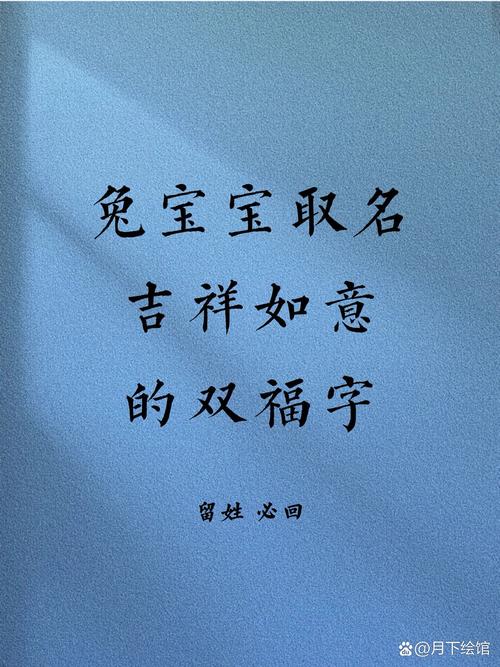 兔宝宝取名
吉祥如意
的双福字
留姓 必回
@月下绘馆